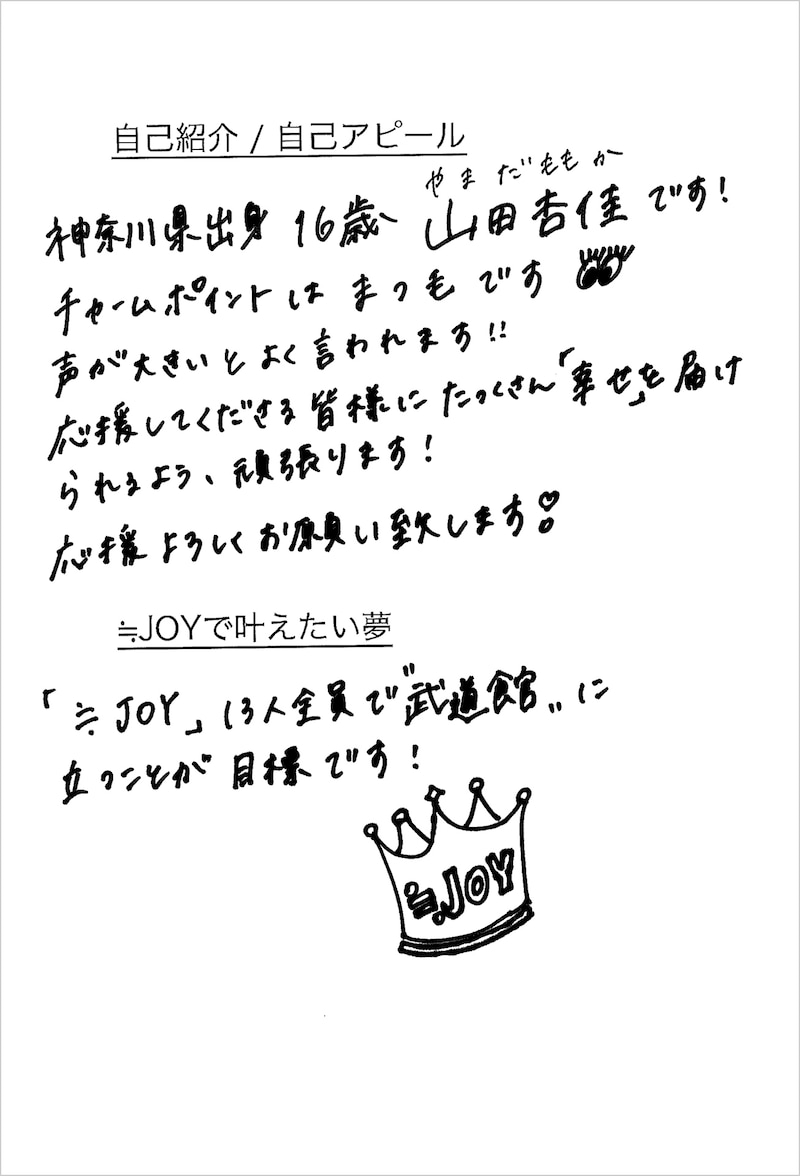 自己紹介 / 自己アピール
やまだももか
神奈川県出身 16歳 山田杏佳です!
チャームポイントは まつ毛です
声が大きいとよく言われます!!
応援してくださる皆様にたっくさん「幸せ」を届け
られるよう、頑張ります!
応援よろしくお願い致します
≒JOYで叶えたい夢
「≒JOY」13人全員で"武道館"に
立つことが目標です!
≒JOY